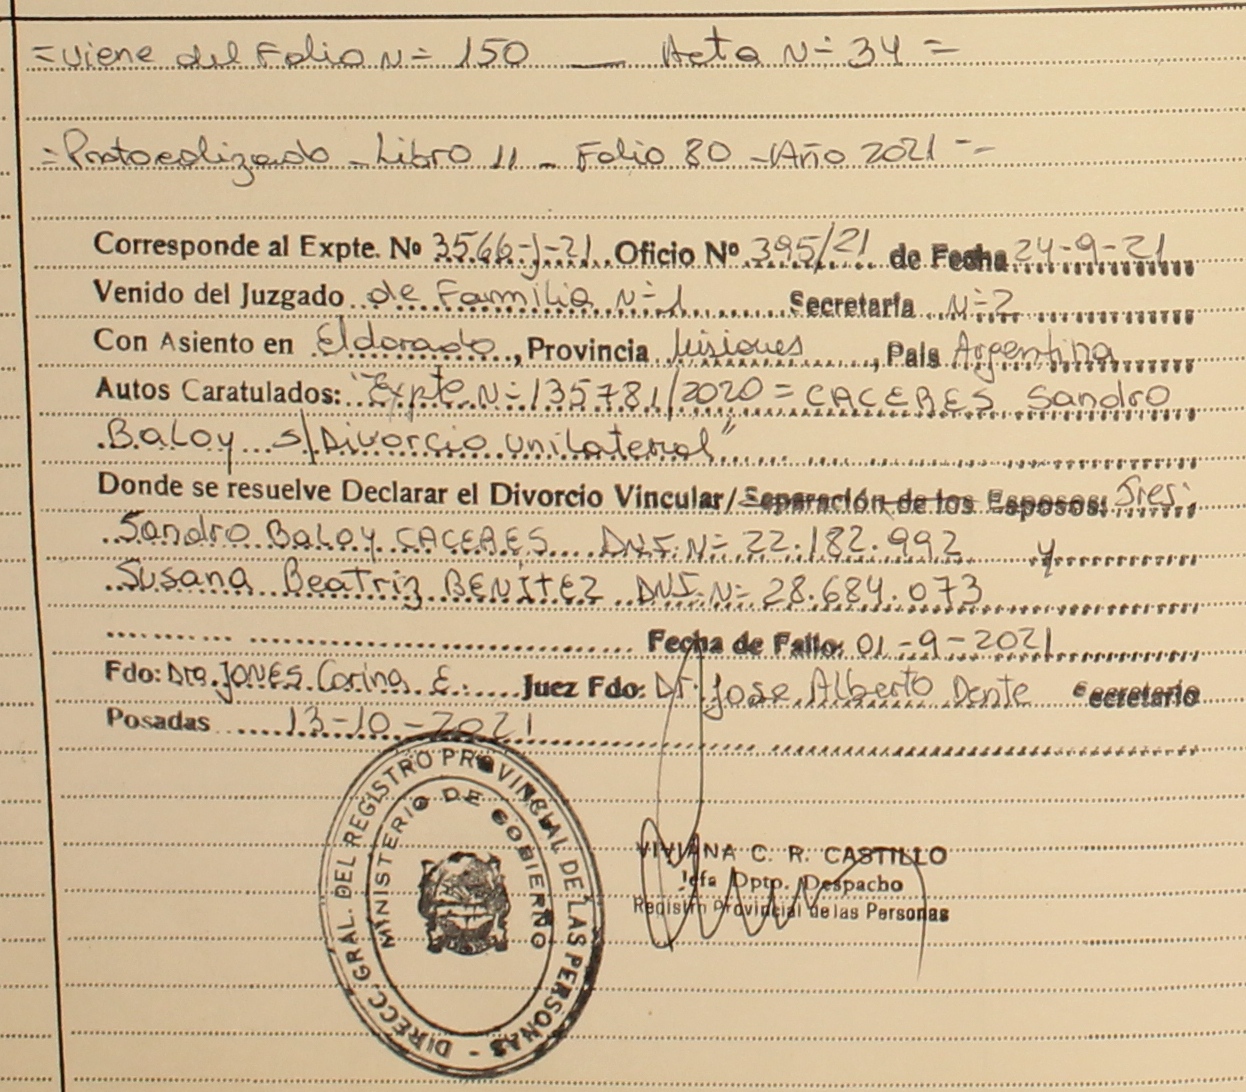 =Viene del Folio N= 150 — Acta N= 34 =
=Protocolizado - Libro 11 - Folio 80 - Año 2021 --
Corresponde al Expte. Nº 3566-J-21 Oficio Nº 395/21 de Fecha 24-9-21
Venido del Juzgado de Familia N=1 Secretaría N=2
Con Asiento en Eldorado, Provincia Misiones, País Argentina
Autos Caratulados: "Expte N= 135781/2020 = CACERES Sandro
Baloy s/Divorcio unilateral"
Donde se resuelve Declarar el Divorcio Vincular/Separación de los Esposos: Sres:
Sandro Baloy CACERES DNI. N= 22.182.992 y
Susana Beatriz BENÍTEZ DNI. N= 28.684.073
Fecha de Fallo: 01-9-2021
Fdo: Dra. JONES Corina E. Juez Fdo: Dr. Jose Alberto Dente Secretario
Posadas 13-10-2021
DIRECC. GRAL. DEL REGISTRO PROVINCIAL DE LAS PERSONAS -
MINISTERIO DE GOBIERNO
VIVIANA C. R. CASTILLO
Jefa Dpto. Despacho
Registro Provincial de las Personas